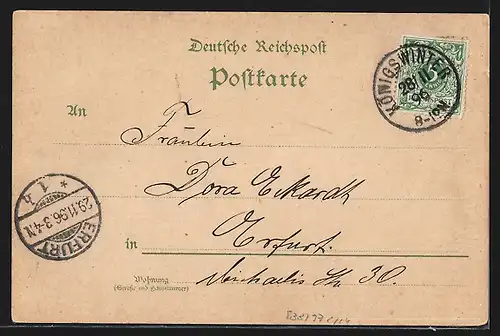 Deutsche Reichspost
Postkarte
KÖNIGSWINTER
28 11
96
8-9N.
An
Fräulein
Dora Eckardt
in Erfurt.
Michaelis Str. 30.
Wohnung
(Straße und Hausnummer)
ERFURT
* 1 h
29.11.96.3-4N.